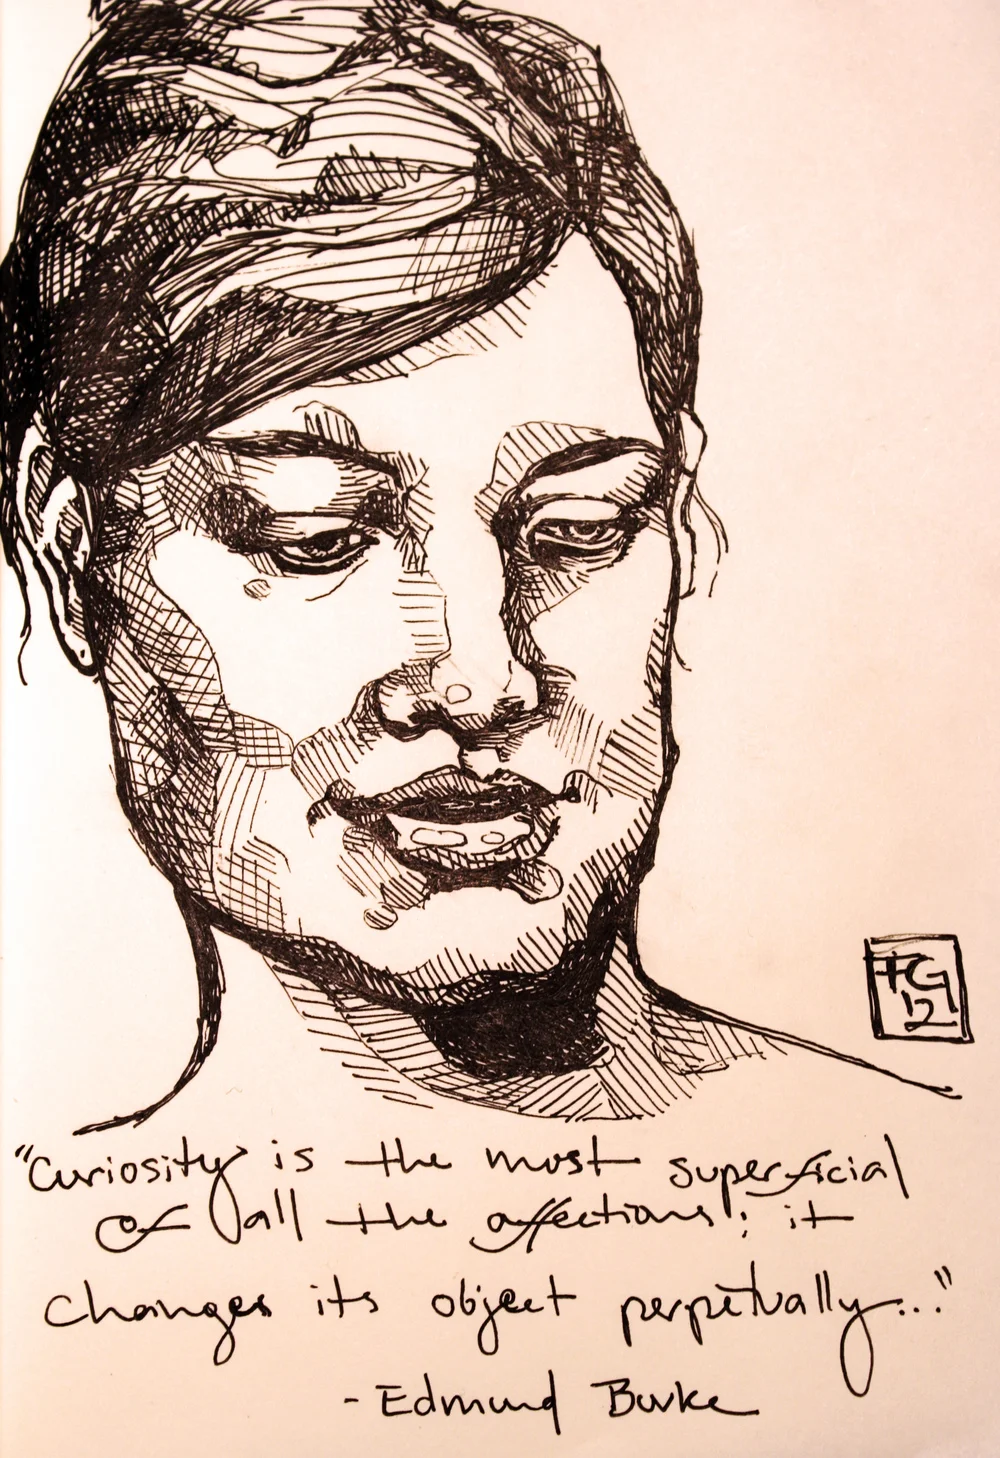 FG
12
"Curiosity is the most superficial
of all the affections; it
changes its object perpetually..."
- Edmund Burke